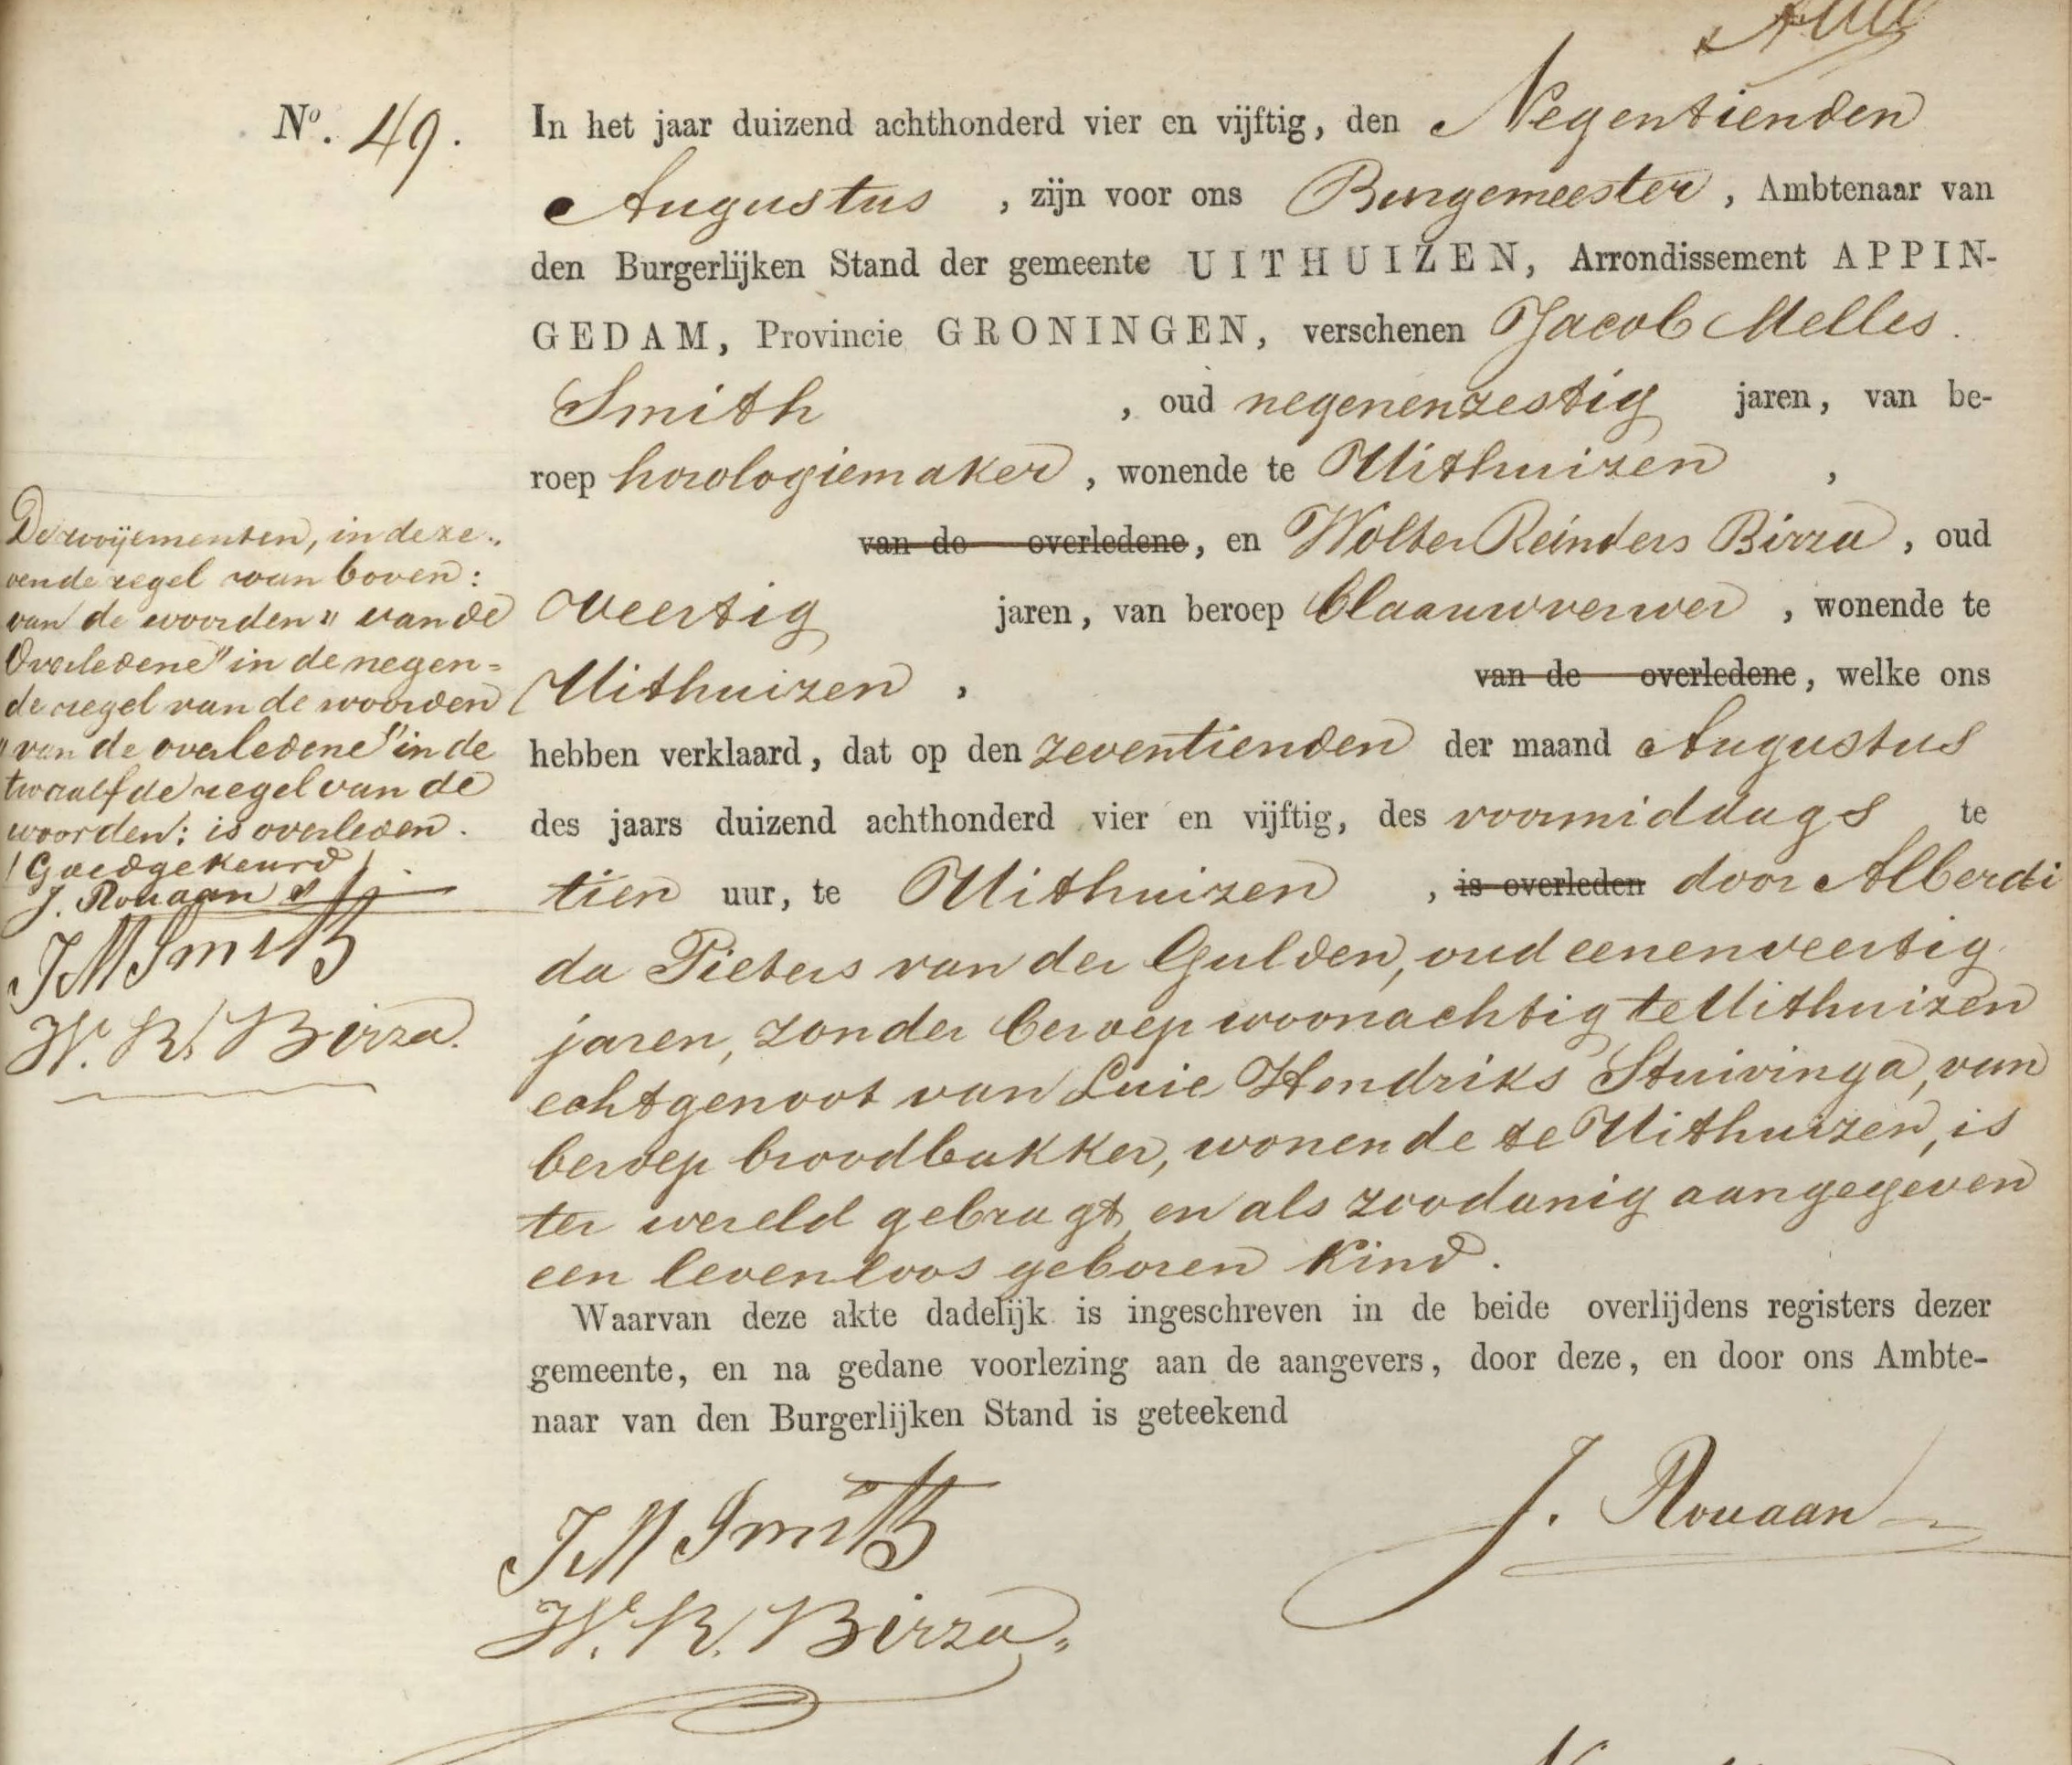 No. 49.
In het jaar duizend achthonderd vier en vijftig, den Negentienden
Augustus , zijn voor ons Burgemeester , Ambtenaar van
den Burgerlijken Stand der gemeente UITHUIZEN, Arrondissement APPIN-
GEDAM, Provincie GRONINGEN, verschenen Jacob Melles
Smith , oud negenenzestig jaren, van be-
roep horologiemaker , wonende te Uithuizen ,
van de overledene, en Wolter Reinders Birza , oud
veertig jaren, van beroep blaauwverwer , wonende te
Uithuizen , van de overledene, welke ons
hebben verklaard, dat op den zeventienden der maand Augustus
des jaars duizend achthonderd vier en vijftig, des voormiddags te
tien uur, te Uithuizen , is overleden door Alberdi
da Pieters van der Gulden, oud eenenveertig
jaren, zonder beroep woonachtig te Uithuizen
echtgenoot van Luie Hendriks Stuivinga, van
beroep broodbakker, wonende te Uithuizen, is
ter wereld gebragt, en als zoodanig aangegeven
een levenloos geboren kind.
Waarvan deze akte dadelijk is ingeschreven in de beide overlijdens registers dezer
gemeente, en na gedane voorlezing aan de aangevers, door deze, en door ons Ambte-
naar van den Burgerlijken Stand is geteekend
JM Smith
J. Rouaan
W. R. Birza
De roijementen, in deze
vende regel van boven:
van de woorden "van de
Overledene" in de negen-
de regel van de woorden
"van de overledene" in de
twaalfde regel van de
woorden: is overleden.
Goedgekeurd
J. Rouaan
JM Smith
W. R. Birza.